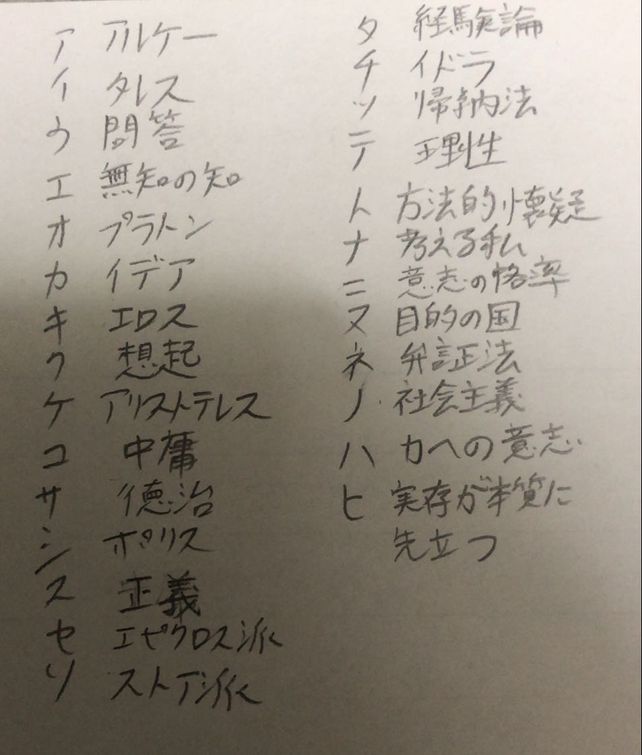 ア アルケー
イ タレス
ウ 問答
エ 無知の知
オ プラトン
カ イデア
キ エロス
ク 想起
ケ アリストテレス
コ 中庸
サ 徳治
シ ポリス
ス 正義
セ エピクロス派
ソ ストア派
タ 経験論
チ イドラ
ツ 帰納法
テ 理性
ト 方法的懐疑
ナ 考える私
ニ 意志の格率
ヌ 目的の国
ネ 弁証法
ノ 社会主義
ハ 力への意志
ヒ 実存が本質に
先立つ